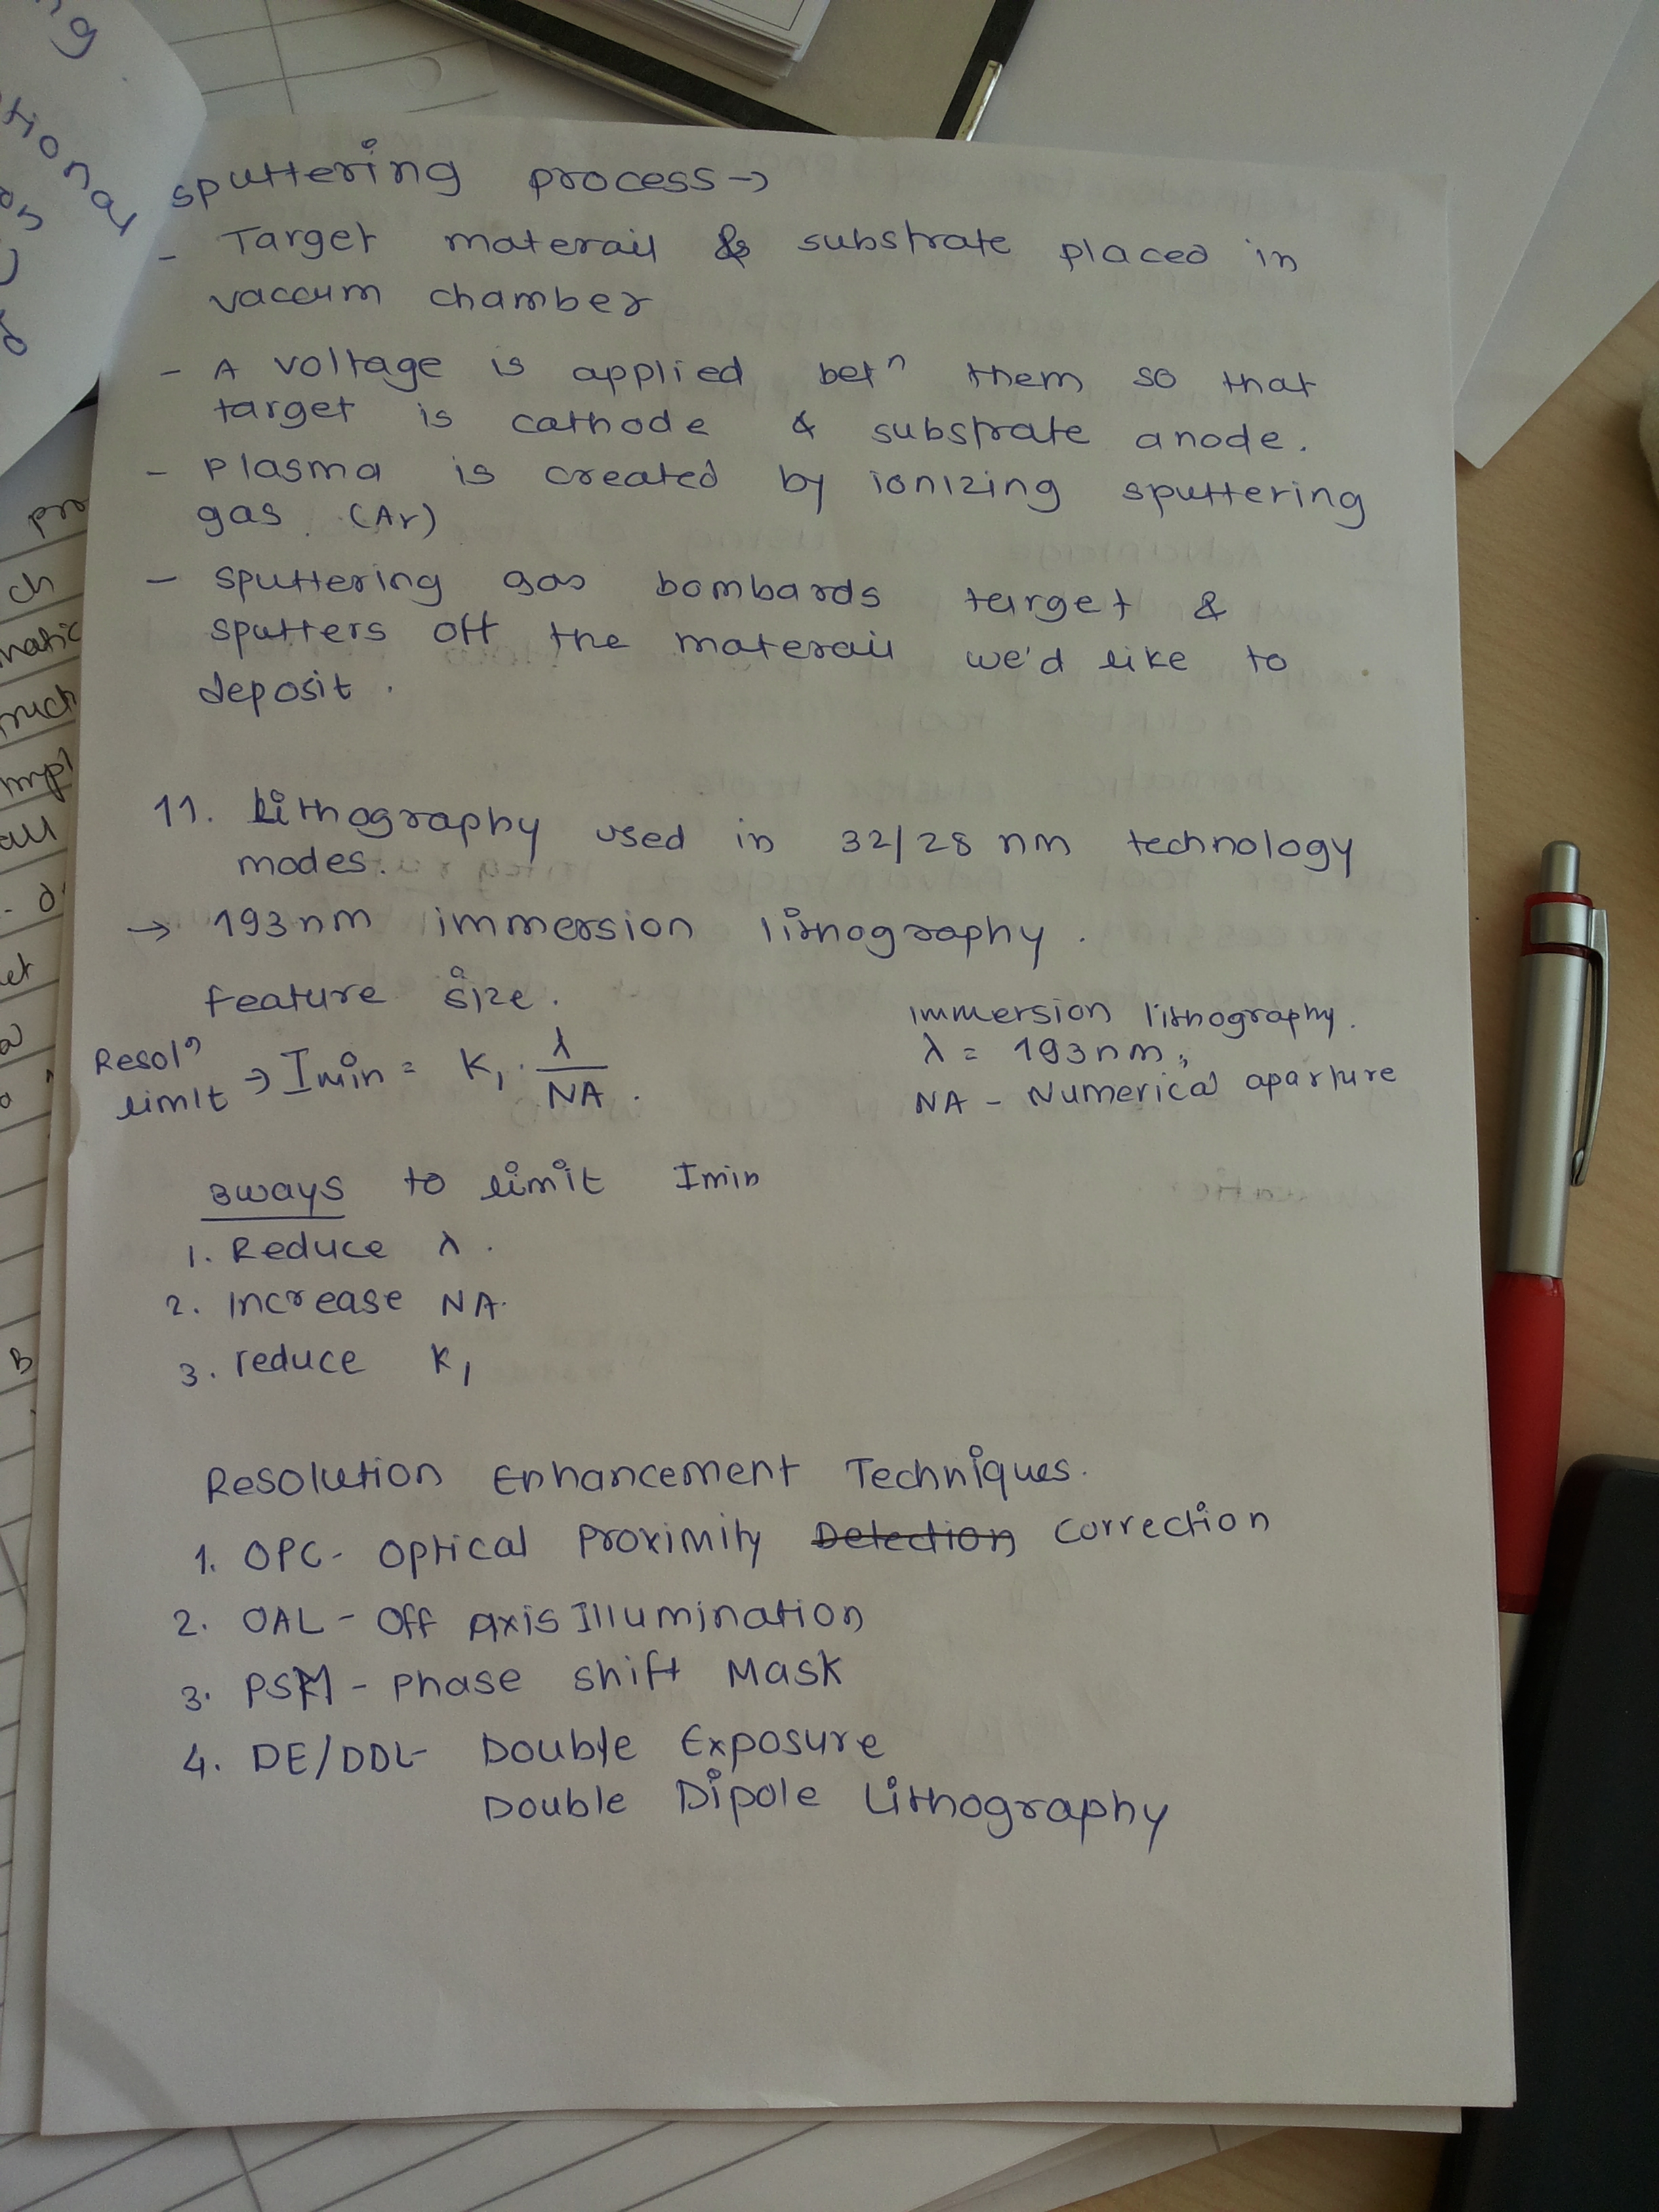 ng
tional
sputtering process →
- Target materail & substrate placed in
vaccum chamber
- A voltage is applied betⁿ them so that
target is cathode & substrate anode.
- Plasma is created by ionizing sputtering
gas. (Ar)
- sputtering gas bombards target &
sputters off the materail we'd like to
deposit.
11. Lithography used in 32/28 nm technology
modes.
→ 193nm immersion lithography.
Feature size.
Resolⁿ
limit → Imin = K₁ . λ / NA .
Immersion lithography.
λ = 193nm,
NA - Numerical aparture
3ways to limit Imin
1. Reduce λ.
2. Increase NA.
3. reduce K₁
Resolution Enhancement Techniques.
1. OPC - Optical Proximity Detection Correction
2. OAL - Off Axis Illumination
3. PSM - Phase shift Mask
4. DE/DDL - Double Exposure
Double Dipole Lithography
pro
ch
matic
ruch
mpl
all
B